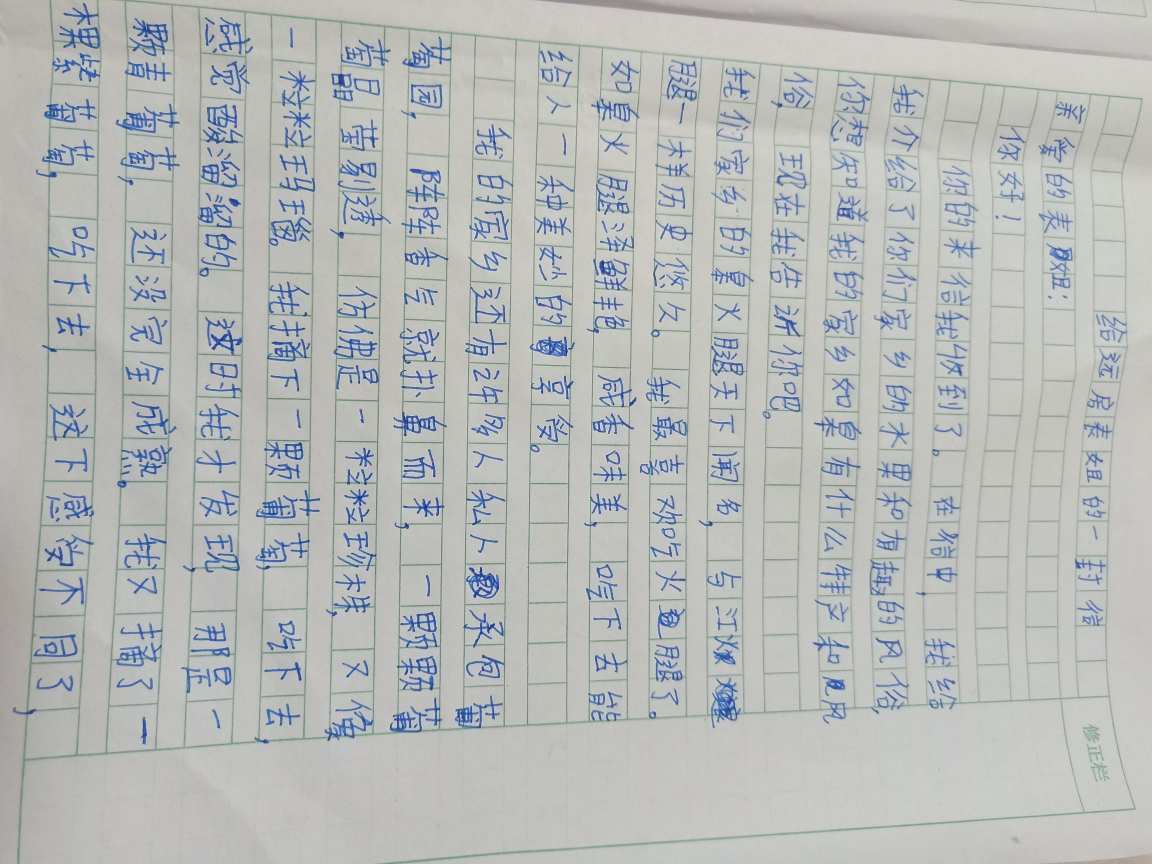 给远房表姐的一封信
亲爱的表姐:
你好!
你的来信我收到了。在信中,我给
我介给了你们家乡的水果和有趣的风俗,
你想知道我的家乡如果有什么特产和风
俗,现在我告诉你吧。
我们家乡的皋火腿天下闻名,与江
腿一样历史悠久。我最喜欢吃火腿了。
如皋火腿泽鲜艳,咸香味美,吃下去能
给人一种美妙的享受。
我的家乡还有许多人私人承包葡
萄园,阵阵香气就扑鼻而来,一颗颗葡
萄晶莹剔透,仿佛是一粒粒珍珠,又像
一粒粒玛瑙。我摘下一颗葡萄,吃下去,
感觉酸溜溜的。这时我才发现,那是一
颗青葡萄,还没完全成熟。我又摘了一
棵紫葡萄,吃下去,这下感受不同了,
修正栏